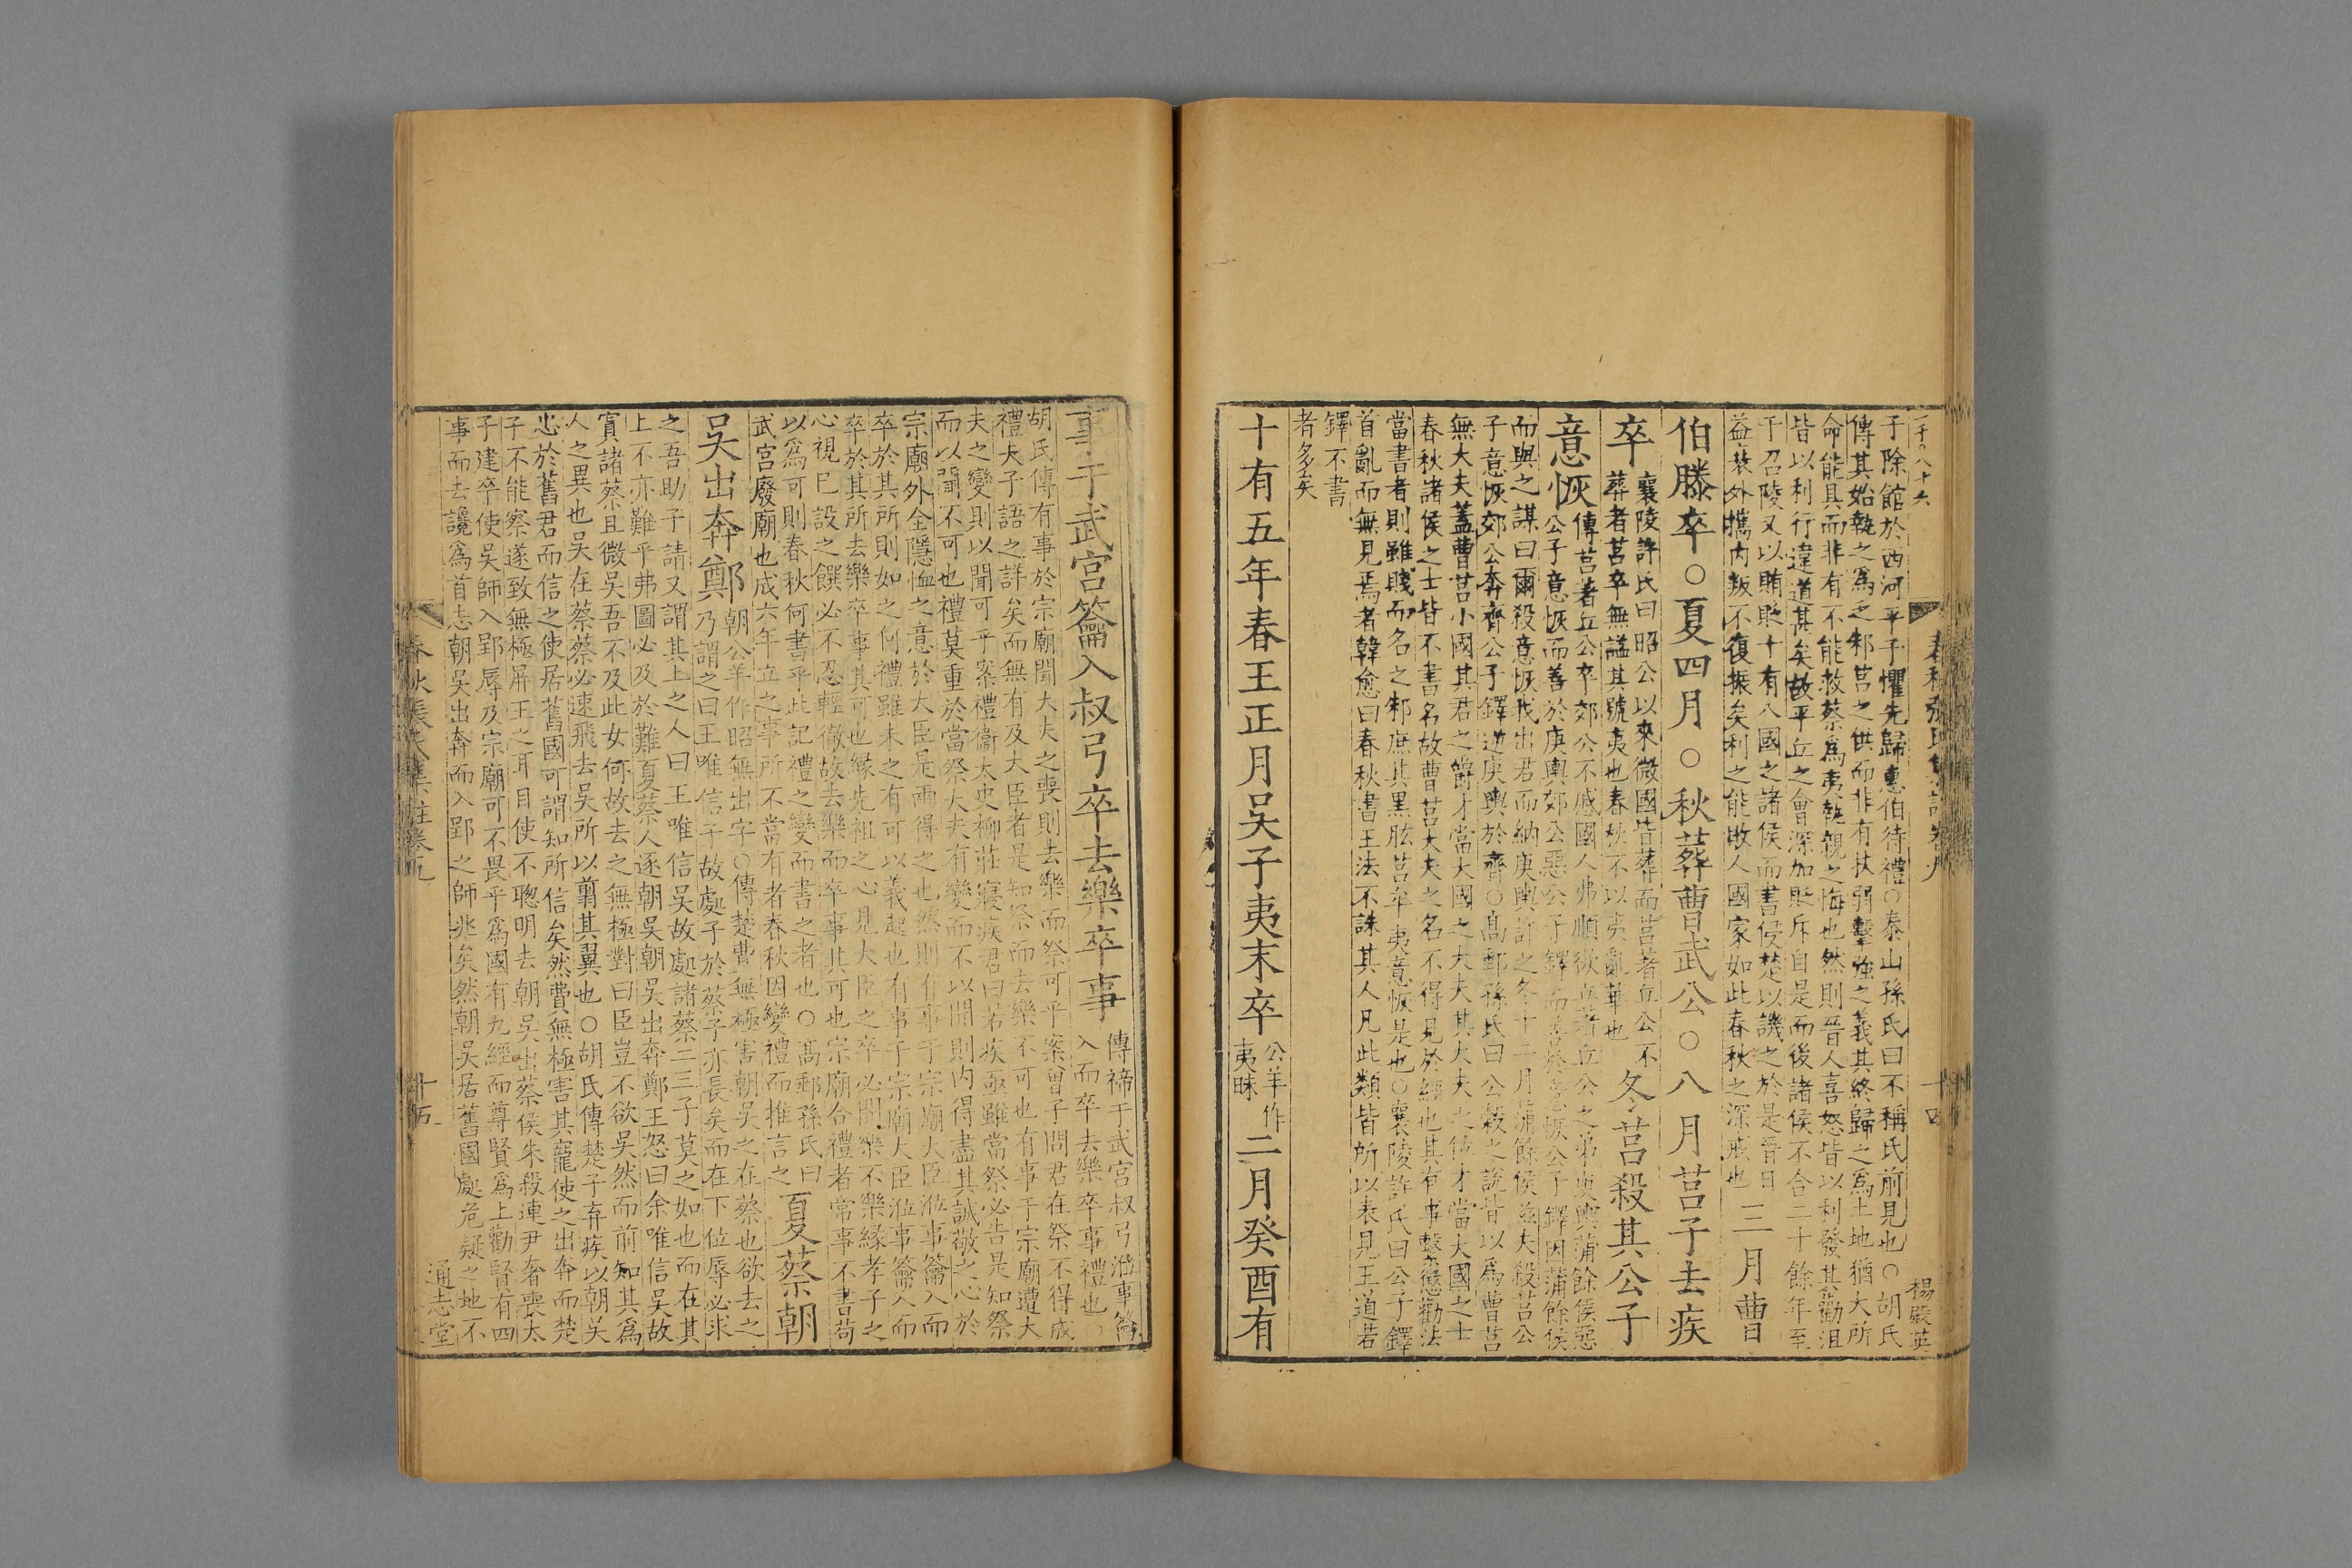 子除館於西河平子懼先歸惠伯待禮○泰山孫氏曰不稱氏前見也○胡氏
傳其始執之為乏邾莒之供而非有扶弱擊強之義其終歸之為土地猶大所
命能具而非有不能救蔡為夷執親之悔也然則晉人喜怒皆以利發其勸沮
皆以利行違道甚矣故平丘之會深加貶斥自是而後諸侯不合二十餘年至
于召陵又以賄敗十有八國之諸侯而書侵楚以譏之於是晉日
益衰外攜內叛不復振矣利之能敗人國家如此春秋之深戒也 三月曹
伯滕卒○夏四月○秋葬曹武公○八月莒子去疾
卒 襄陵許氏曰昭公以來微國皆葬而莒著丘公不
葬者莒卒無謚其號夷也春秋不以夷亂華也 冬莒殺其公子
意恢 傳莒著丘公卒郊公不慼國人弗順欲立著丘公之弟庚輿蒲餘侯惡
公子意恢而善於庚輿郊公惡公子鐸而善於意恢公子鐸因蒲餘侯
而與之謀曰爾殺意恢我出君而納庚輿許之冬十二月蒲餘侯茲夫殺莒公
子意恢郊公奔齊公子鐸逆庚輿於齊○高郵孫氏曰公穀之說皆以為曹莒
無大夫蓋曹莒小國其君之爵才當大國之大夫其大夫之位才當大國之士
春秋諸侯之士皆不書名故曹莒大夫之名不得見於經也其有事繫懲勸法
當書者則雖賤而名之邾庶其黑肱莒牟夷意恢是也○襄陵許氏曰公子鐸
首亂而無見焉者韓愈曰春秋書王法不誅其人凡此類皆所以表見王道若
鐸不書
者多矣
十有五年春王正月吳子夷末卒 公羊作
夷昧 二月癸酉有
春秋張氏集註卷九
十四
楊嚴英
事于武宮籥入叔弓卒去樂卒事 傳禘于武宮叔弓涖事籥
入而卒去樂卒事禮也
胡氏傳有事於宗廟聞大夫之喪則去樂而祭可乎案曾子問君在祭不得成
禮夫子語之詳矣而無有及大臣者是知祭而去樂不可也有事于宗廟遭大
夫之變則以聞可乎案禮衞太史柳莊寢疾君曰若疾亟雖當祭必告是知祭
而以聞不可也禮莫重於當祭大夫有變而不以聞則內得盡其誠敬之心於
宗廟外全隱恤之意於大臣是兩得之也然則有事于宗廟大臣涖事籥入而
卒於其所則如之何禮雖未之有可以義起也有事于宗廟大臣涖事籥入而
卒於其所去樂卒事其可也緣先祖之心見大臣之卒必聞樂不樂緣孝子之
心視已設之饌必不忍輕徹故去樂而卒事其可也宗廟合禮者常事不書苟
以為可則春秋何書乎此記禮之變而書之者也○高郵孫氏曰
武宮廢廟也成六年立之事所不當有者春秋因變禮而推言之 夏蔡朝
吳出奔鄭 朝公羊作昭無出字○傳楚費無極害朝吳之在蔡也欲去之
乃謂之曰王唯信子故處子於蔡子亦長矣而在下位辱必求
之吾助子請又謂其上之人曰王唯信吳故處諸蔡二三子莫之如也而在其
上不亦難乎弗圖必及於難夏蔡人逐朝吳朝吳出奔鄭王怒曰余唯信吳故
寘諸蔡且微吳吾不及此女何故去之無極對曰臣豈不欲吳然而前知其為
人之異也吳在蔡蔡必速飛去吳所以翦其翼也○胡氏傳楚子弃疾以朝吳
忠於舊君而信之使居舊國可謂知所信矣然費無極害其寵使之出奔而楚
子不能察遂致無極屏王之耳目使不聰明去朝吳出蔡侯朱殺連尹奢喪太
子建卒使吳師入郢辱及宗廟可不畏乎為國有九經而尊賢為上勸賢有四
事而去讒為首志朝吳出奔而入郢之師兆矣然朝吳居舊國處危疑之地不
十五
通志堂